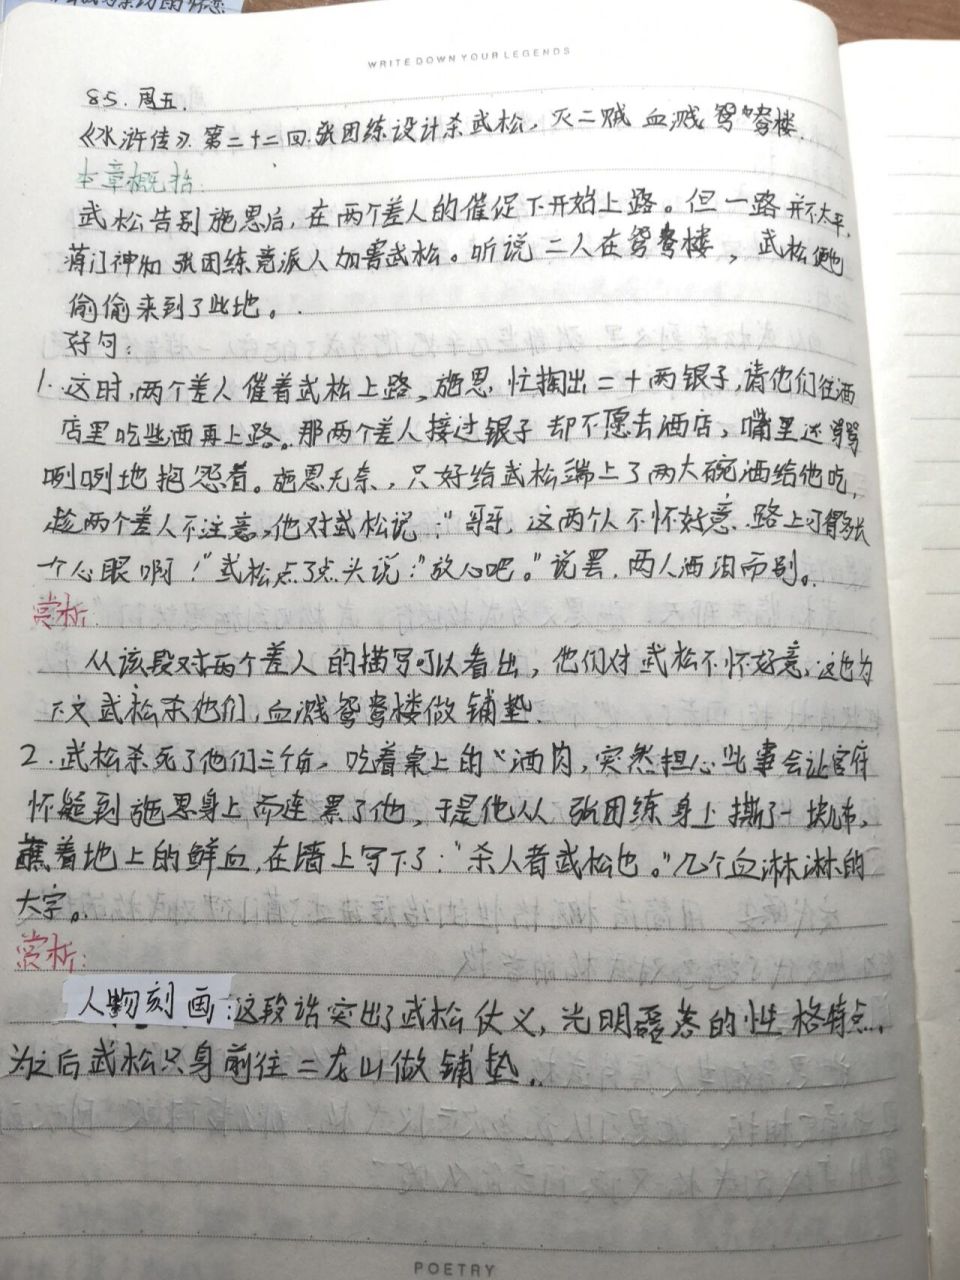 WRITE DOWN YOUR LEGENDS
8.5. 周五.
《水浒传》. 第二十二回.张团练设计杀武松, 灭二贼 血溅鸳鸯楼.
本章概括:
武松告别施恩后,在两个差人的催促下开始上路。但一路并不太平,
蒋门神和张团练竟派人加害武松。听说二人在鸳鸯楼,武松便
偷偷来到了此地。
好句:
1.这时,两个差人催着武松上路。施恩,忙掏出二十两银子,请他们往酒
店里吃些酒再上路。那两个差人接过银子却不愿去酒店,嘴里还骂骂
咧咧地抱怨着。施恩无奈,只好给武松端上了两大碗酒给他吃,
趁两个差人不注意,他对武松说:"哥哥,这两个人不怀好意.路上可得多长
个心眼啊!"武松点了点头说:"放心吧。"说罢.两人洒泪而别。
赏析:
从该段对两个差人的描写可以看出,他们对武松不怀好意,这也为
下文武松杀他们,血溅鸳鸯楼做铺垫.
2.武松杀死了他们三个后,吃着桌上的"酒肉,突然担心此事会让官府
怀疑到施恩身上而连累了他,于是他从张团练身上撕了一块布,
蘸着地上的鲜血,在墙上写下了:"杀人者武松也。"几个血淋淋的
大字。
赏析:
人物刻画:这段话突出了武松仗义,光明磊落的性格特点,
为之后武松只身前往二龙山做铺垫.
POETRY